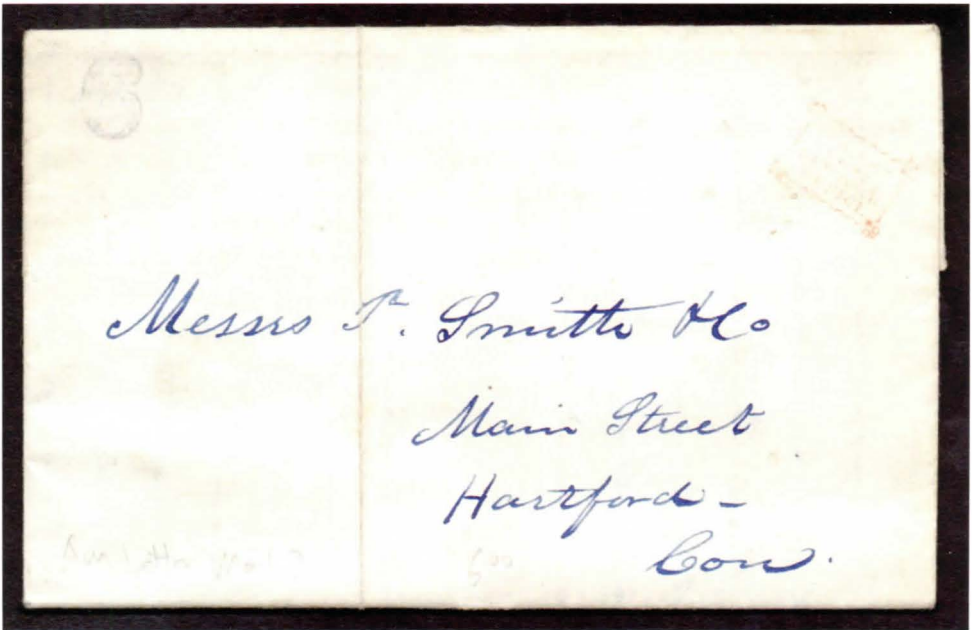 Messrs T. Smith & Co
Main Street
Hartford -
Con.